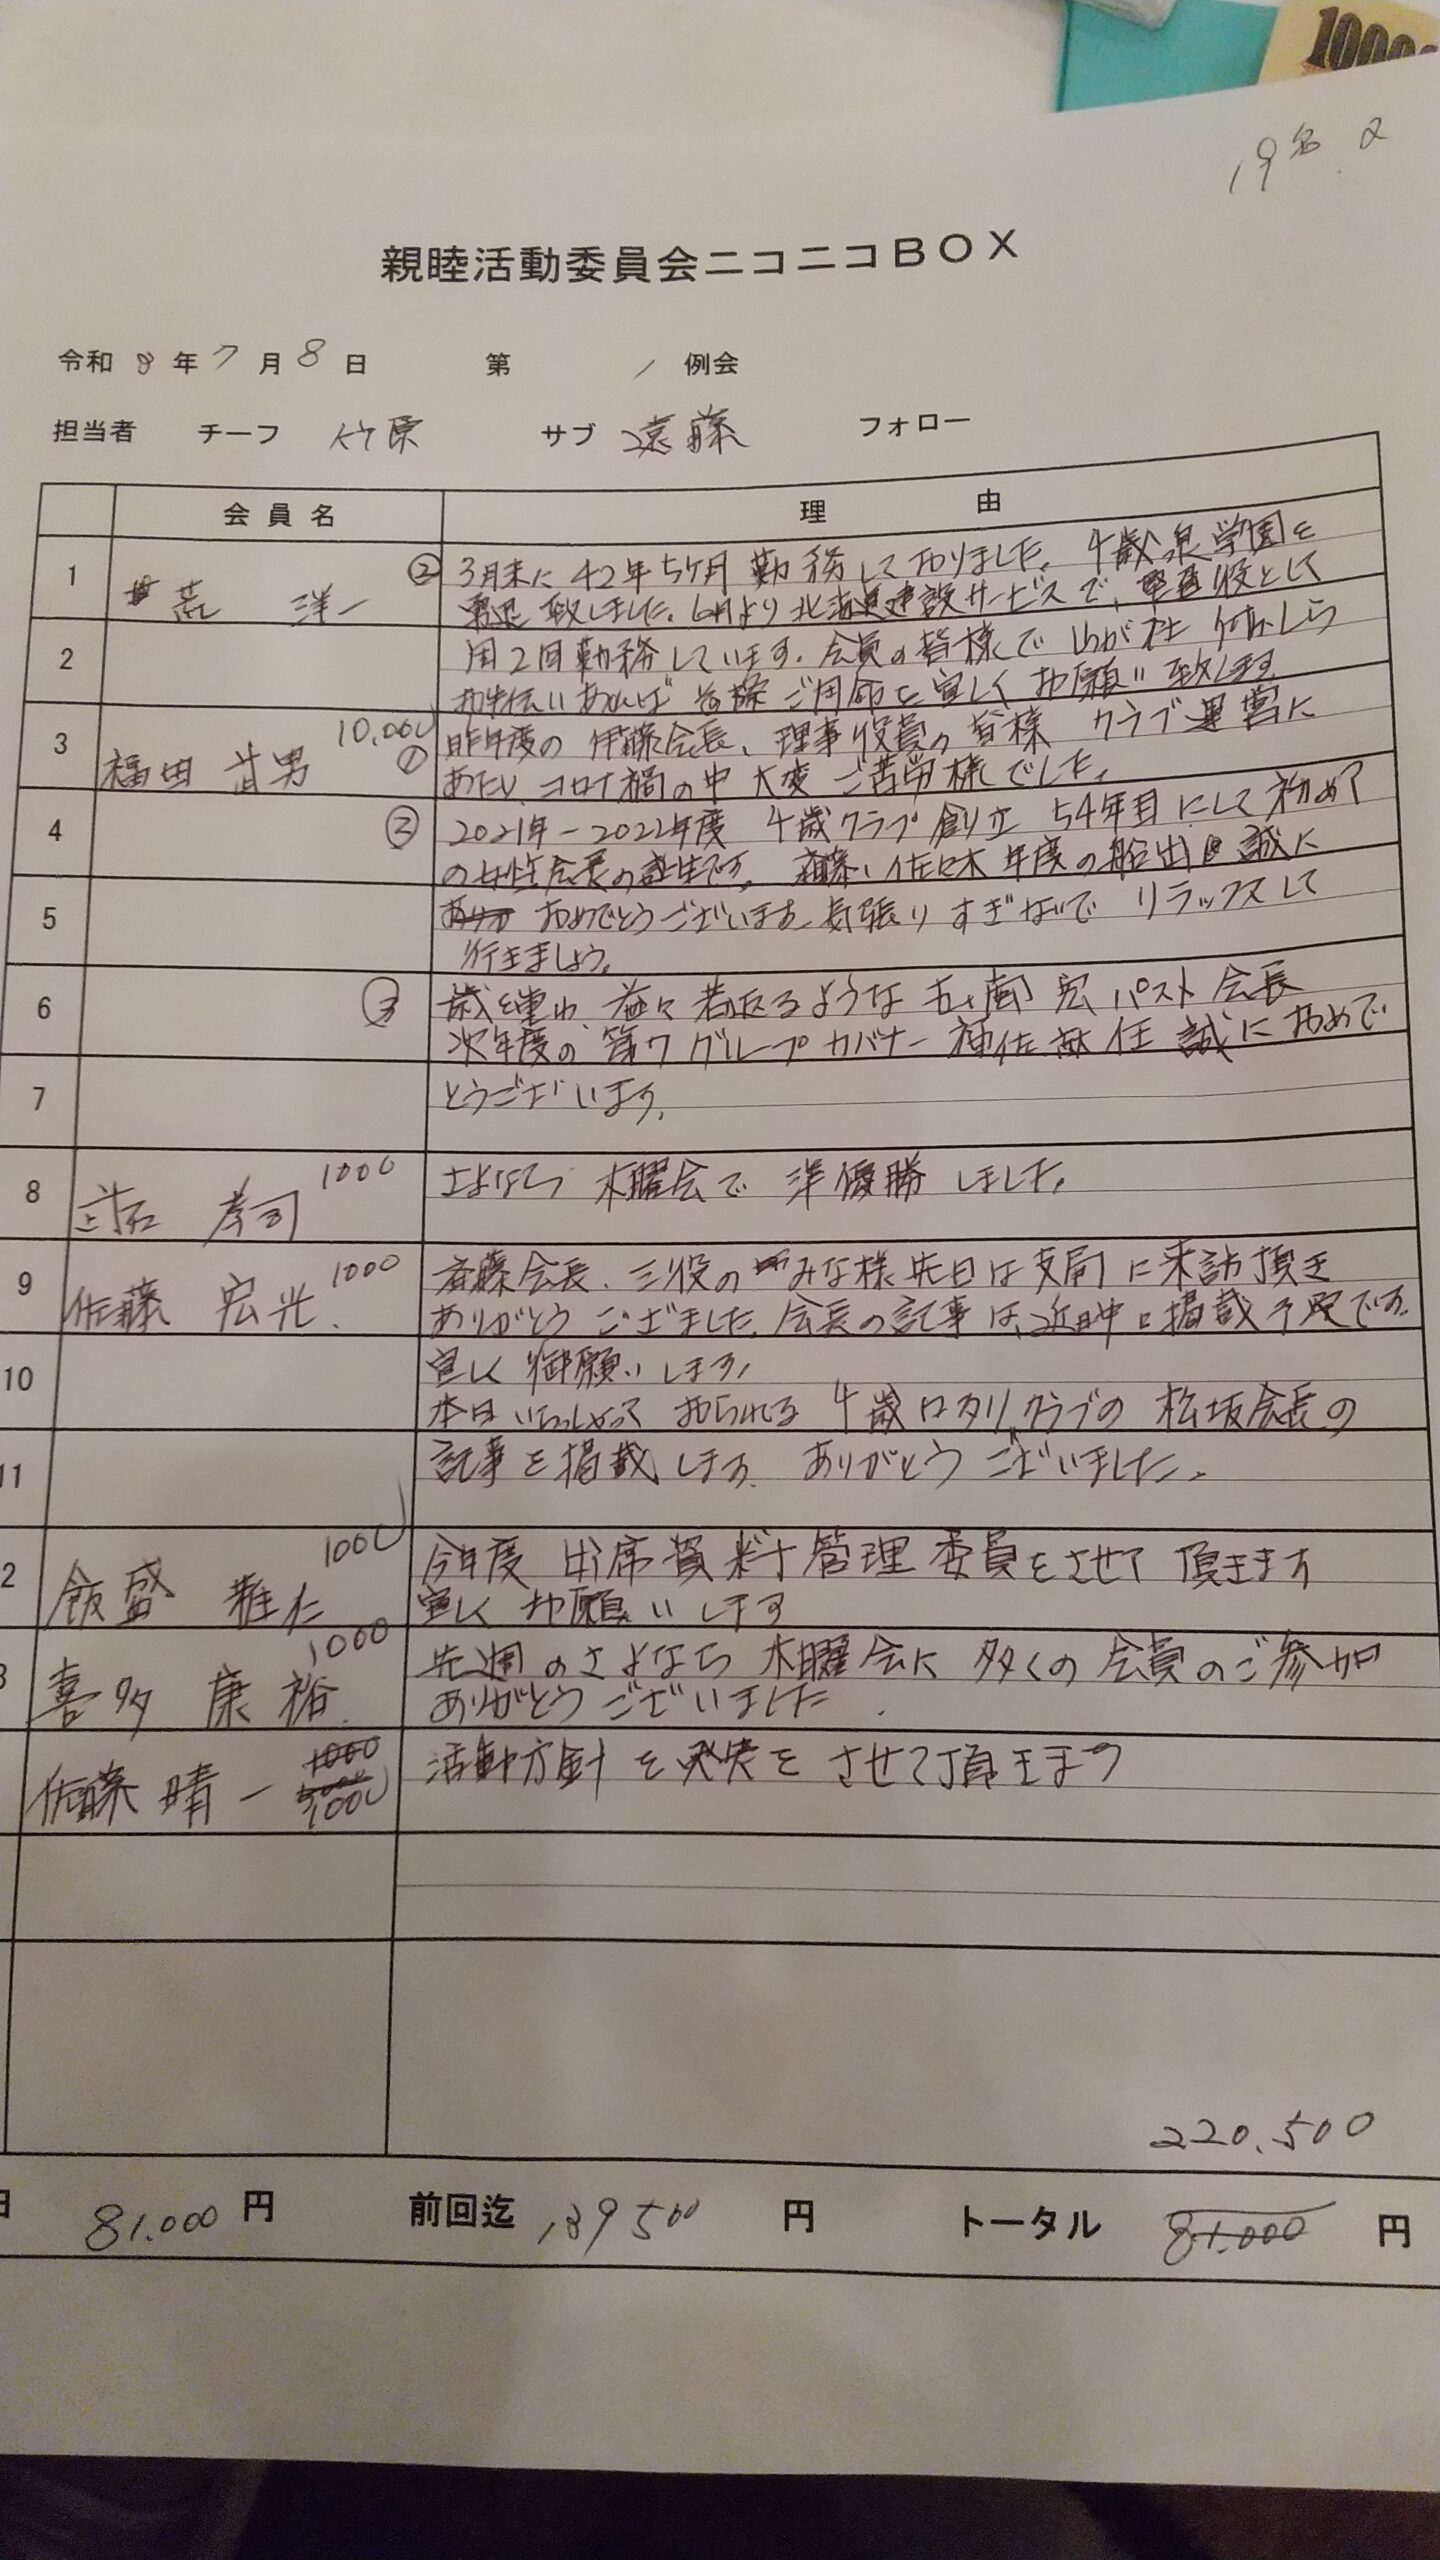 1000
19名
親睦活動委員会ニコニコBOX
令和 8 年 7 月 8 日 第 1 例会
担当者 チーフ 竹原 サブ 遠藤 フォロー
会員名 理由
1 荒 洋一 ② 3月末に42年5ヶ月勤務しておりました、千歳泉学園を
致しました。6月より北海道建設サービスで、
2 周2回勤務しています。会員の皆様でわが社 何かしら
お手伝いあれば ご用命を宜しくお願い致します
3 福田 武男 10,000 ① 昨年度の伊藤会長、理事役員の皆様 クラブ運営に
あたり、コロナ禍の中 大変ご苦労様でした。
4 ② 2021年-2022年度 千歳クラブ創立 54年目にして初めて
の女性会長の誕生です。斎藤、佐々木年度の船出 誠に
5 おめでとうございます。気張りすぎないで リラックスして
行きましょう。
6 ③ 歳を重ね、益々若返るような 五十嵐 宏 パスト会長
次年度の第7グループガバナー補佐就任 誠におめで
7 とうございます。
8 孝司 1000 さよなら 木曜会で 準優勝しました。
9 佐藤 宏光 1000 斎藤会長、三役のみな様先日は支局に来訪頂き
ありがとうございました。会長の記事は、近日中に掲載予定です。
10 宜しく御願いします。
本日いらっしゃっておられる 千歳ロータリークラブの 松坂会長の
11 記事を掲載します。ありがとうございました。
2 飯盛 雅仁 1000 今年度 出席資料管理委員をさせて頂きます
宜しくお願いします
3 喜多 康裕 1000 先週のさよなら木曜会に 多くの会員のご参加
ありがとうございました.
佐藤 晴一 1000 活動方針を発表をさせて頂きます
220,500
日 81,000 円 前回迄 139500 円 トータル 81,000 円